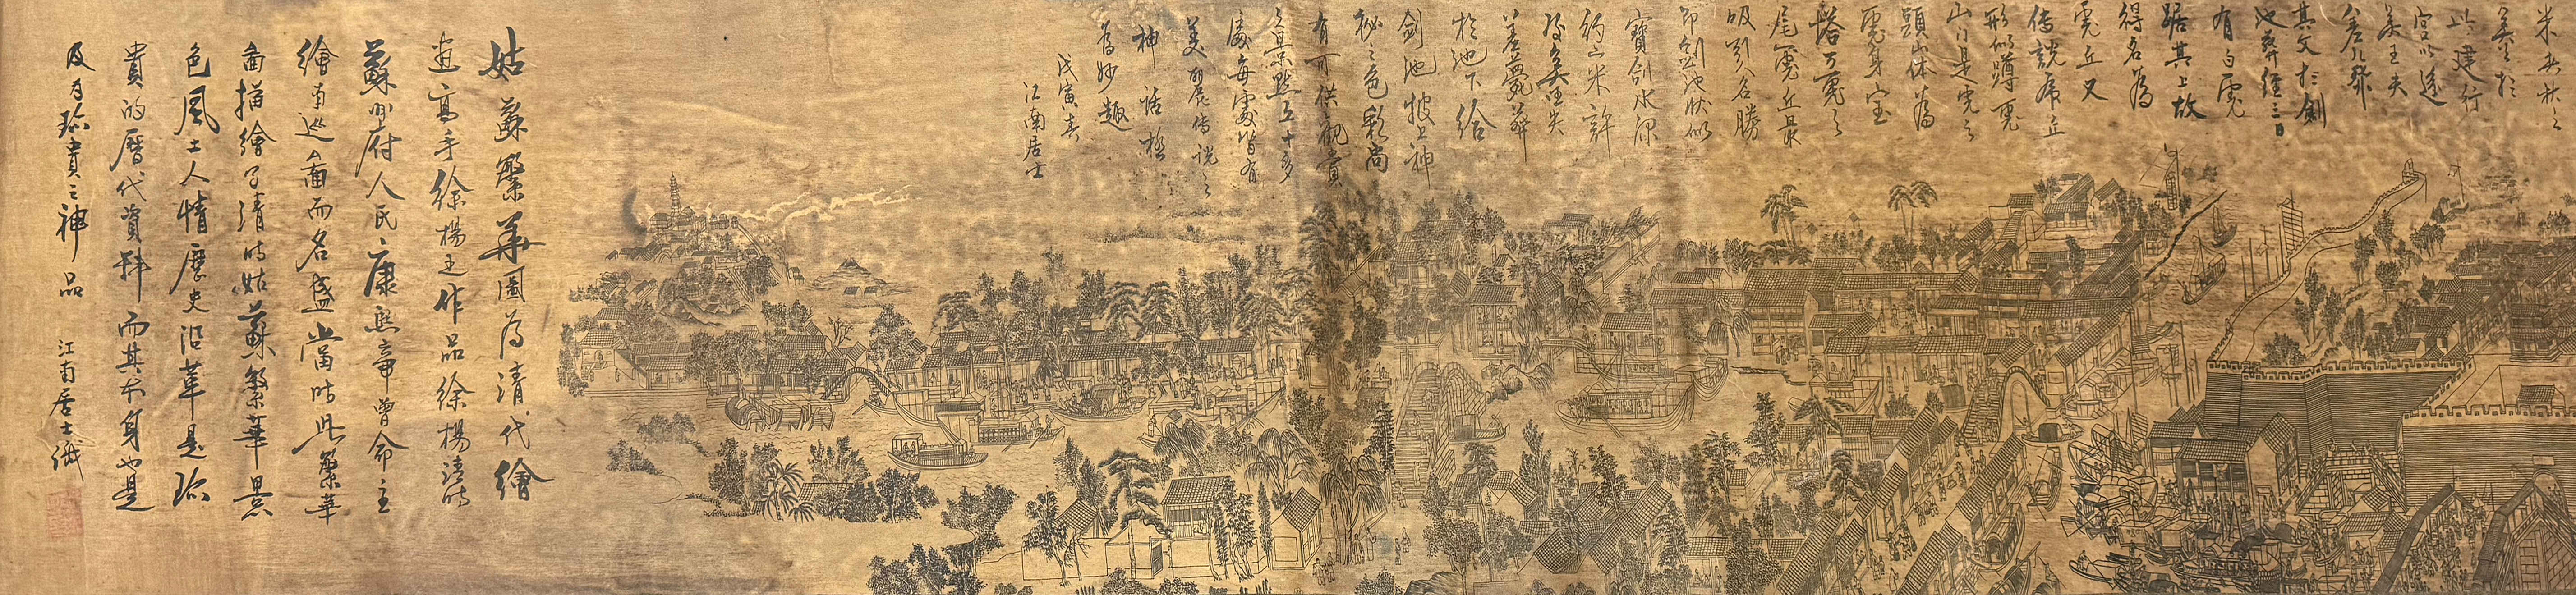 此建行
吴王夫
其父扵劍
池葬經三日
有白虎
踞其上故
得名為
虎丘又
传說虎丘
形似蹲虎
山门是虎之
頭山体為
虎身宝
塔为虎之
尾虎丘最
吸引名勝
即劍池狀似
寶劍水深
约六米許
為吳王夫
扵池下給
劍池披上神
秘之色彩尚
有可供觀賞
之景點五十多
處每處皆有
美麗傳說之
神話極
為妙趣
戊寅春
江南居士
姑蘇繁華圖为清代繪
畫高手徐楊之作品徐楊清时
蘇州府人民康熙帝曾命主
繪南巡圖而名盛當时此繁華
圖描繪了清时姑蘇繁華景
色風土人情歷史沿革是珎
貴的曆代資料而其本身也是
及为珎貴之神品
江南居士識